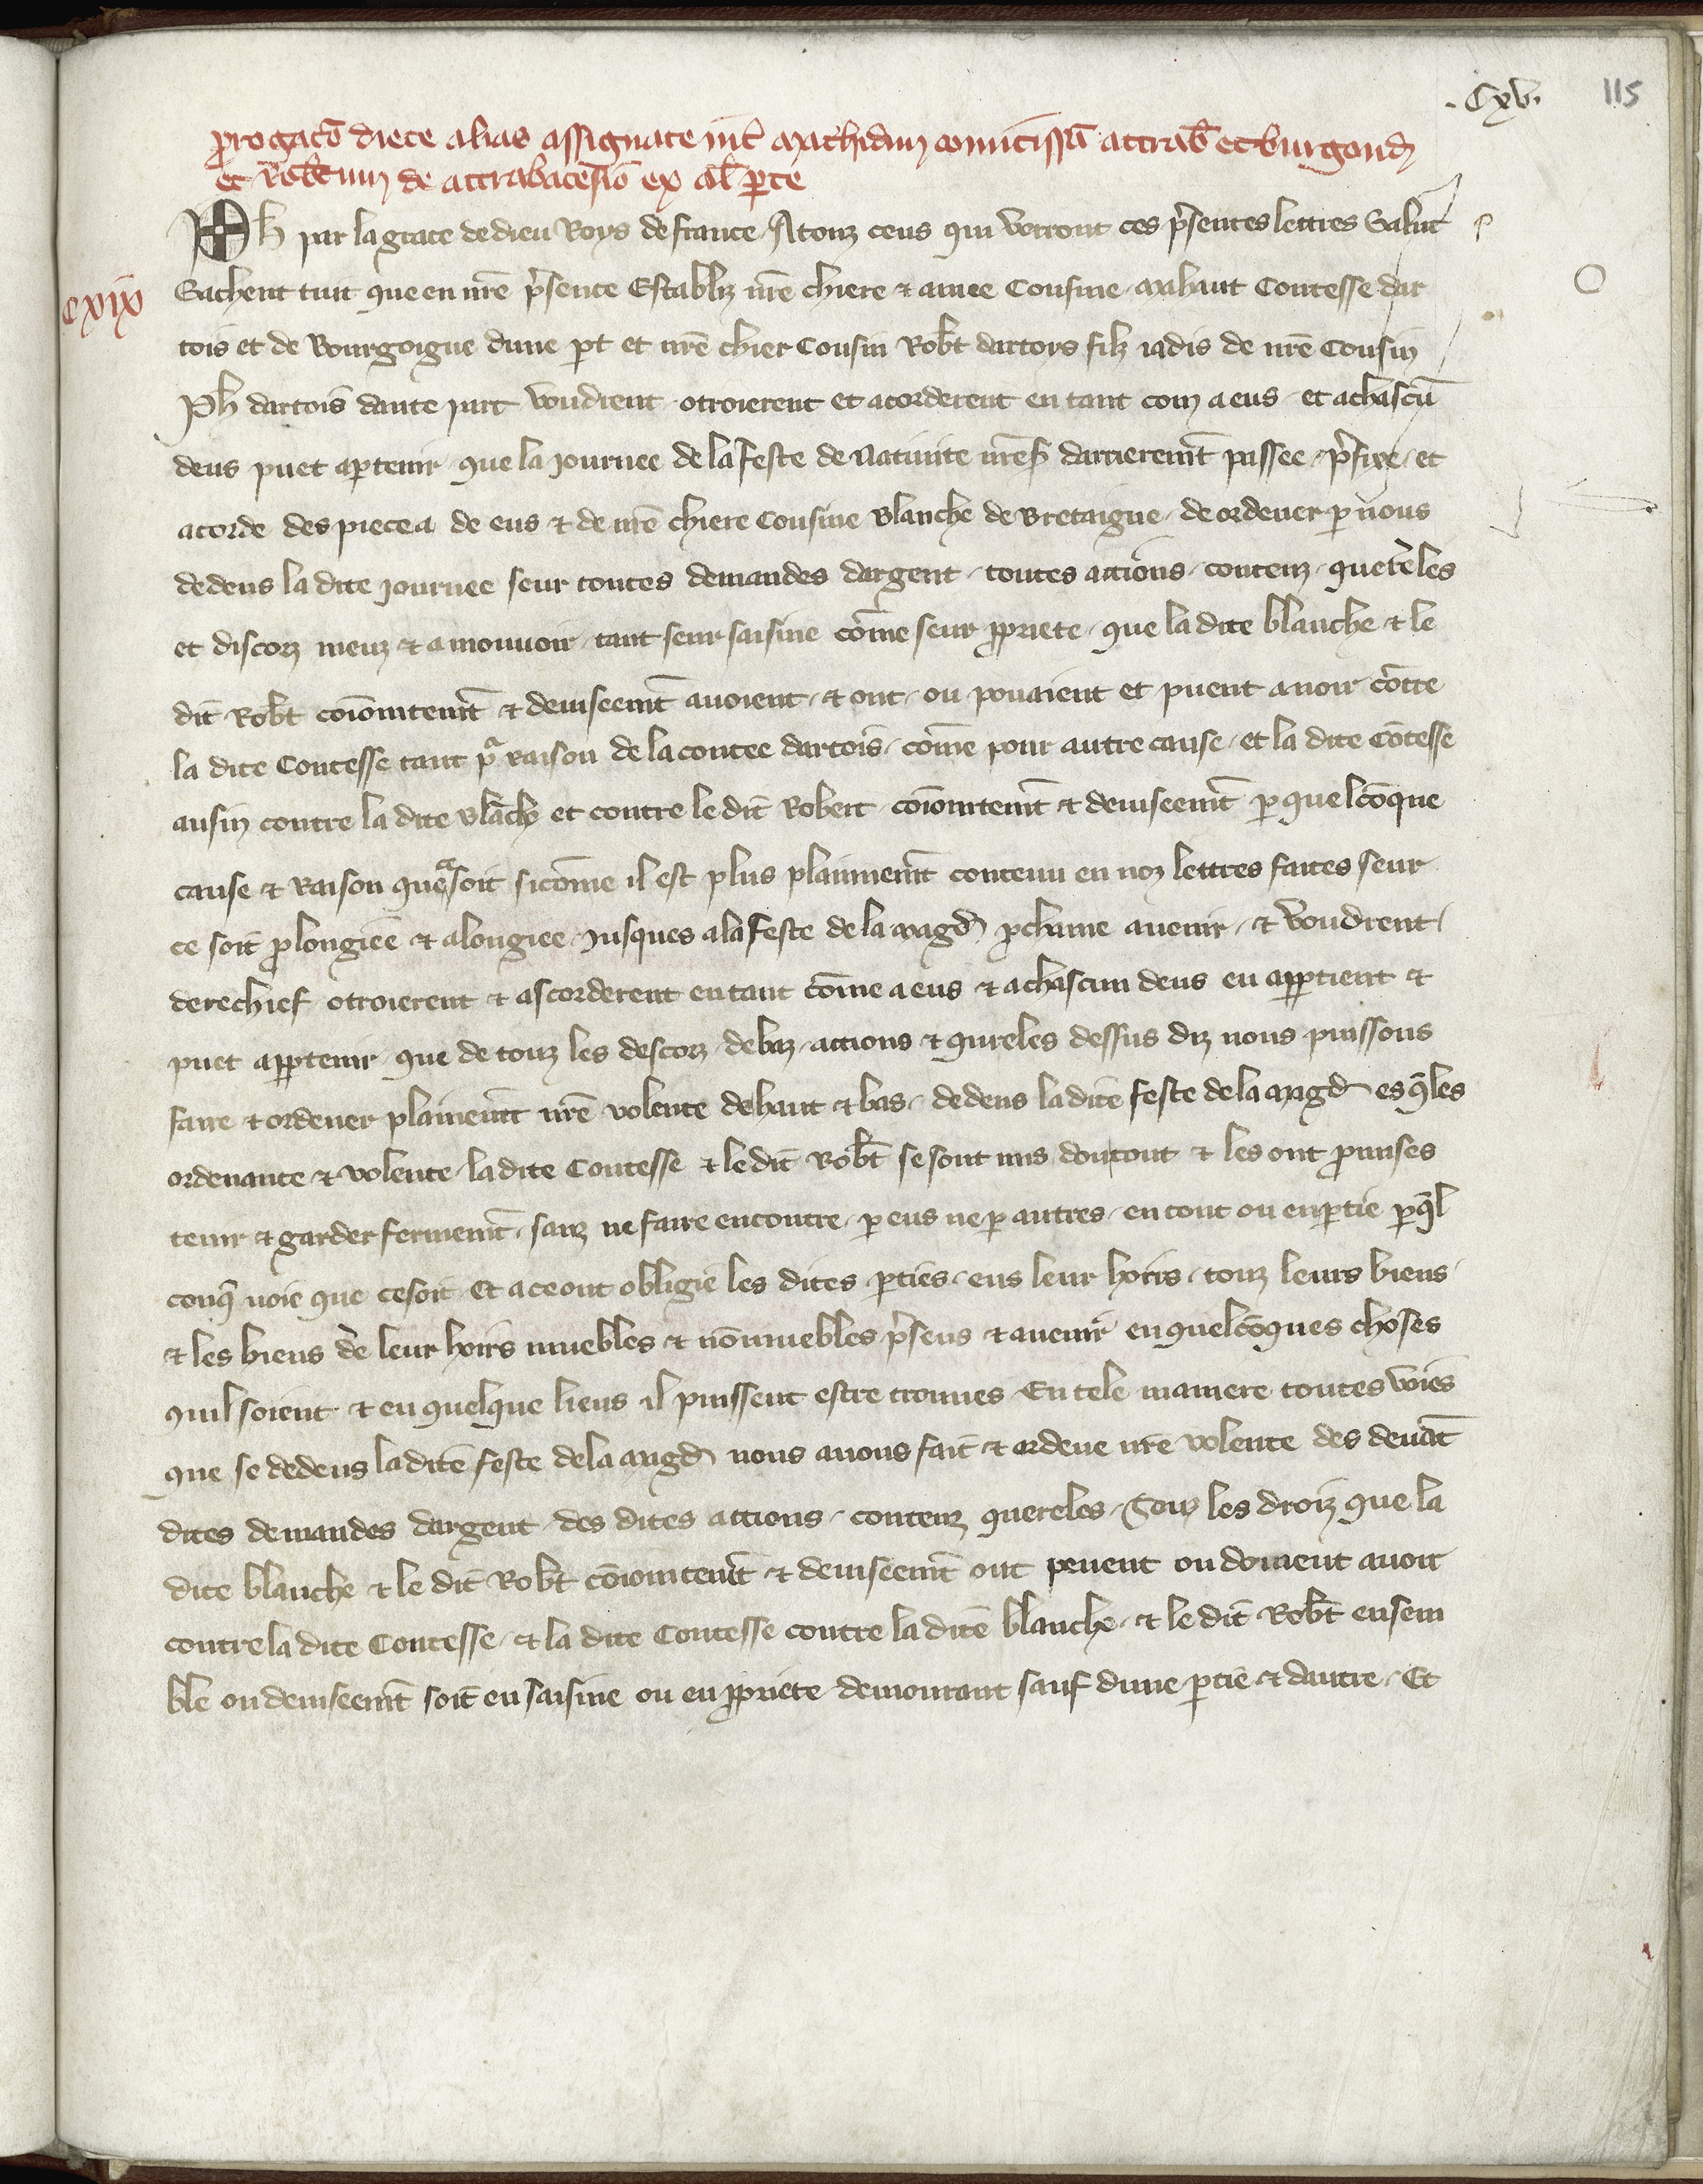 .Cxv. 115
ꝓrogacō diete alias assignate int̄ mathidim comitissā attrab̄ et burgond
et Rob̄tum de attrabatesio ex al̄ ꝑte
Ph par la grace de dieu Roys de france A touz ceus qui verront ces p̄sentes lettres Salut
cxix Sachent tuit que en nr̄e p̄sence Establiz nr̄e chiere & amee Cousine mahaut Contesse dar
tois et de Bourgoigne dune ꝑt et nr̄e chier Cousin Rob̄t dartoys filz iadis de nr̄e Cousin
Ph dartois dautre part voudrent otroierent et acorderent en tant com a eus et a chascū
deus puet aꝑtenir que la journee de la feste de Natiuite nr̄e darrierem̄t passee p̄fixe et
acorde des piece a de eus & de nr̄e chiere Cousine Blanche de Bretaigne de ordener ꝑ nous
dedens la dite journee seur toutes demandes dargent toutes actions contenz quereles
et discorz meuz & a mouuoir tant seur saisine cōme seur ꝓpriete que la dite blanche & le
dit Rob̄t coniointem̄t & deuiseem̄t auoient & ont ou pouaient et puent auoir cōtre
la dite Contesse tant pᵃ raison de la contee dartois cōme pour autre cause et la dite Cōtesse
ausin contre la dite Blāche et contre le dit Robert coniointem̄t & deuiseem̄t ꝑ quelcōque
cause & raison que ce soit sicōme il est plus plainnem̄t contenu en noz lettres faites seur
ce soit ꝓlongiee & alongiee jusques a la feste de la magd ꝓchaine auenir & voudrent
derechief otroierent & ascorderent en tant cōme a eus & a chascun deus en apꝑtient &
puet apꝑtenir que de touz les descorz debaz actions & qureles dessus diz nous puissons
faire & ordener plainem̄t nr̄e volente de haut & bas dedens la dite feste de la magd es q̄les
ordenance & volente la dite Contesse & le dit Rob̄t se sont mis dou tout & les ont ꝓmises
tenir & garder fermem̄t sanz ne faire encontre ꝑ eus ne ꝑ autres en tout ou en ꝑtie ꝑ q̄l
conq̄ voie que ce soit Et a ce ont obligie les dites ꝑties eus leur hoirs touz leurs biens
& les biens de leur hoirs muebles & nōmuebles p̄sens & auenir en quelcōques choses
quil soient & en quelque liens il puissent estre trouues En tele maniere toutes voies
que se dedens la dite feste de la magd nous auons fait & ordene nr̄e volente des deuāt
dites demandes dargent des dites actions contenz quereles Touz les droiz que la
dite blanche & le dit Rob̄t cōiointem̄t & deuiseem̄t ont peuent ou doiuent auoir
contre la dite Contesse & la dite Contesse contre la dite blanche & le dit Rob̄t ensem
ble ou deuiseem̄t soit en saisine ou en ꝓpriete demourant sauf dune ꝑtie & dautre Et